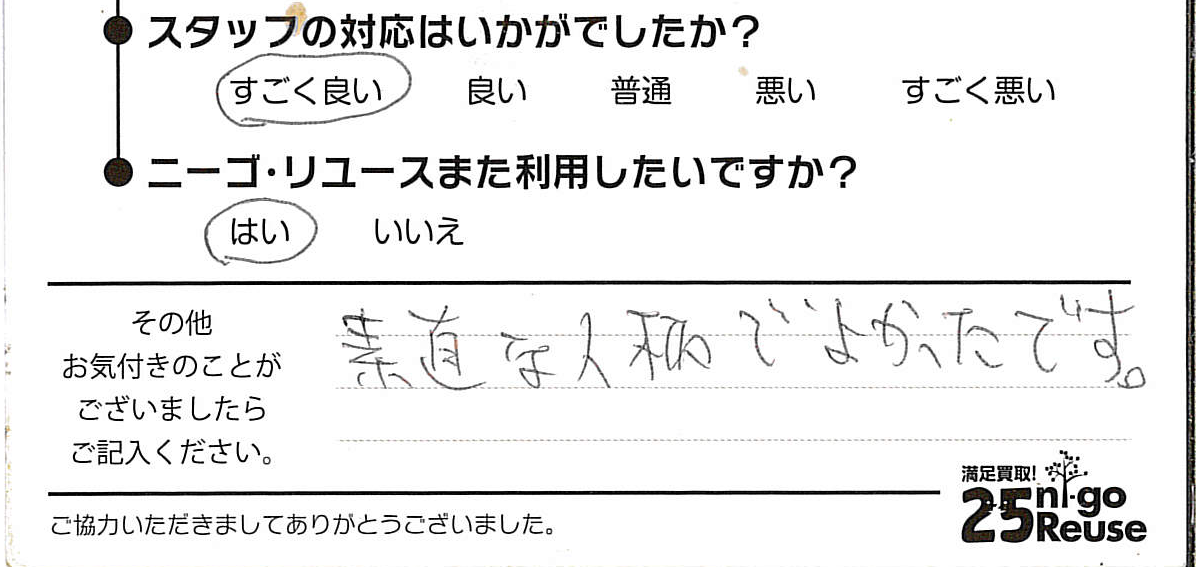 スタッフの対応はいかがでしたか？
すごく良い 良い 普通 悪い すごく悪い
ニーゴ・リユースまた利用したいですか？
はい いいえ
その他
お気付きのことが
ございましたら
ご記入ください。
素直な人柄でよかったです。
満足買取!
25 ni-go
Reuse
ご協力いただきましてありがとうございました。